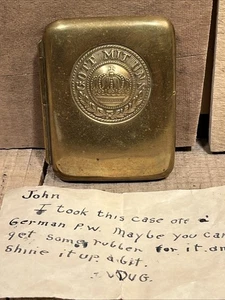 GOTT MIT UNS
John
I took this case off a
German P.W. Maybe you can
get some rubber for it and
shine it up a bit.
DUG.